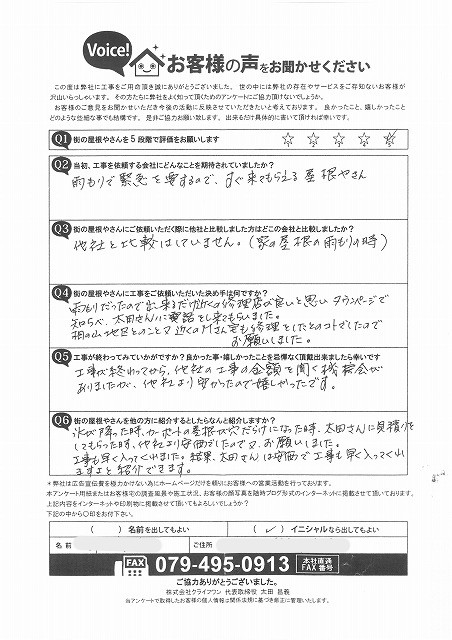 Voice!
お客様の声をお聞かせください
この度は弊社に工事をご用命頂き誠にありがとうございました。 世の中には弊社の存在やサービスをご存知ないお客様が
沢山いらっしゃいます。 その方たちに弊社をよく知って頂くためのアンケートにご協力頂けないでしょうか。
お客様のご意見をお聞かせいただき今後の活動に反映させていただきたいと考えております。 良かったこと、嬉しかったこと
どのような些細な事でも結構です。 是非ご協力お願い致します。 出来るだけ具体的に書いて頂ければ幸いです。
Q1 街の屋根やさんを5段階で評価をお願いします ☆ ☆ ☆ ☆ ☆
Q2 当初、工事を依頼する会社にどんなことを期待されていましたか?
雨もりで緊急を要するので、すぐ来てもらえる屋根やさん
Q3 街の屋根やさんにご依頼いただく際に他社と比較しました方はどこの会社と比較しましたか?
他社と比較はしていません。(家の屋根の雨もりの時)
Q4 街の屋根やさんに工事をご依頼いただいた決め手は何ですか?
雨もりだったので出来るだけ近くの修理店が良いと思いタウンページで
知らべ、太田さんに電話をし来てもらいました。
山地区とのことで近くの さん宅も修理をしたとのコトでしたので
お願いしました。
Q5 工事が終わってみていかがですか?良かった事・嬉しかったことを忌憚なく頂戴出来ましたら幸いです
工事が終わってから、他社の工事の金額を聞く機会が
ありましたが、他社より安かったので嬉しかったです。
Q6 街の屋根やさんを他の方に紹介するとしたらなんと紹介しますか?
氷が降った時、カーポートの屋根が穴だらけになった時、太田さんに見積りを
してもらった時、他社より安価でしたので、お願いしました。
工事も早く入ってくれました。結果、太田さんは安価で工事も早く入ってくれ
ますよと紹介できます。
*弊社は広告宣伝費を極力かけない為にホームページだけを頼りにお客様への営業活動を行っております。
本アンケート用紙またはお客様宅の調査風景や施工状況、お客様の顔写真を随時ブログ形式のインターネットに掲載させて頂いております。
上記内容をインターネットや印刷物に掲載させて頂いてもよろしいでしょうか?
下記の中から〇印をお付下さい。
( ) 名前を出してもよい ( ✓ ) イニシャルなら出してもよい
名 前 ご住所
FAX 079-495-0913 本社直通FAX番号
ご協力ありがとうございました。
株式会社クライフワン 代表取締役 太田 昌義
当アンケートで取得したお客様の個人情報は関係法規に基づき厳正に管理いたします。